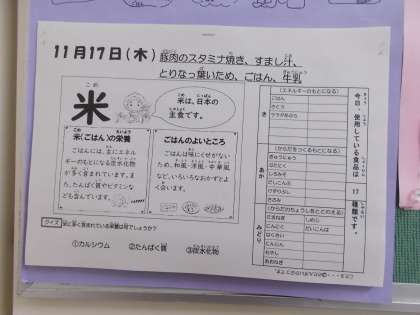 11月17日(木) 豚肉のスタミナ焼き、すまし汁、
とりなっ葉いため、ごはん、牛乳
米
米は、日本の
主食です。
米(ごはん)の栄養
ごはんには、主にエネル
ギーのもとになる炭水化物
が多く含まれています。ま
た、たんぱく質やビタミンな
ども含んでいます。
ごはんのよいところ
ごはんは味にくせがない
ため、和風・洋風・中華風
など、いろいろなおかずとよ
く合います。
クイズ 米に多く含まれている栄養は何でしょうか?
①カルシウム ②たんぱく質 ③炭水化物
今日、使用している食品は 17 種類です。
き
(エネルギーのもとになる)
ごはん
さとう
サラダあぶら
あか
(からだをつくるもとになる)
ぎゅうにゅう
ぶたにく
とりにく
みどり
(からだのちょうしをととのえる)
たまねぎ
しめじ
にんにく
だいこんば
はくさい
にんじん
もやし